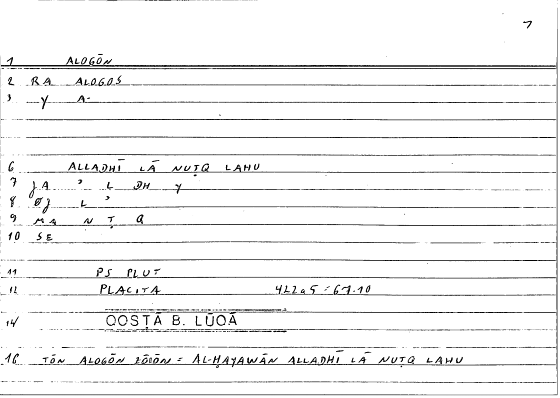 7
1 ALOGŌN
2 RA ALOGOS
3 Y A-
6 ALLADHĪ LĀ NUṬQ LAHU
7 JA ʾ L DH Y
8 ØJ L ʾ
9 MA N Ṭ Q
10 SE
11 PS PLUT
12 PLACITA 422a5 = 67.10
14 QOSṬĀ B. LŪQĀ
16 TŌN ALOGŌN ZŌŌŌN = AL-ḤAYAWĀN ALLADHĪ LĀ NUṬQ LAHU